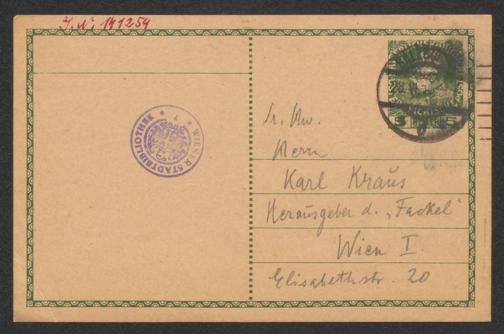 J. N. 141254
WIENER STADTBIBLIOTHEK
Sr. Hw.
Herrn
Karl Kraus
Herausgeber d. „Fackel"
Wien I.
Elisabethstr. 20
5 5